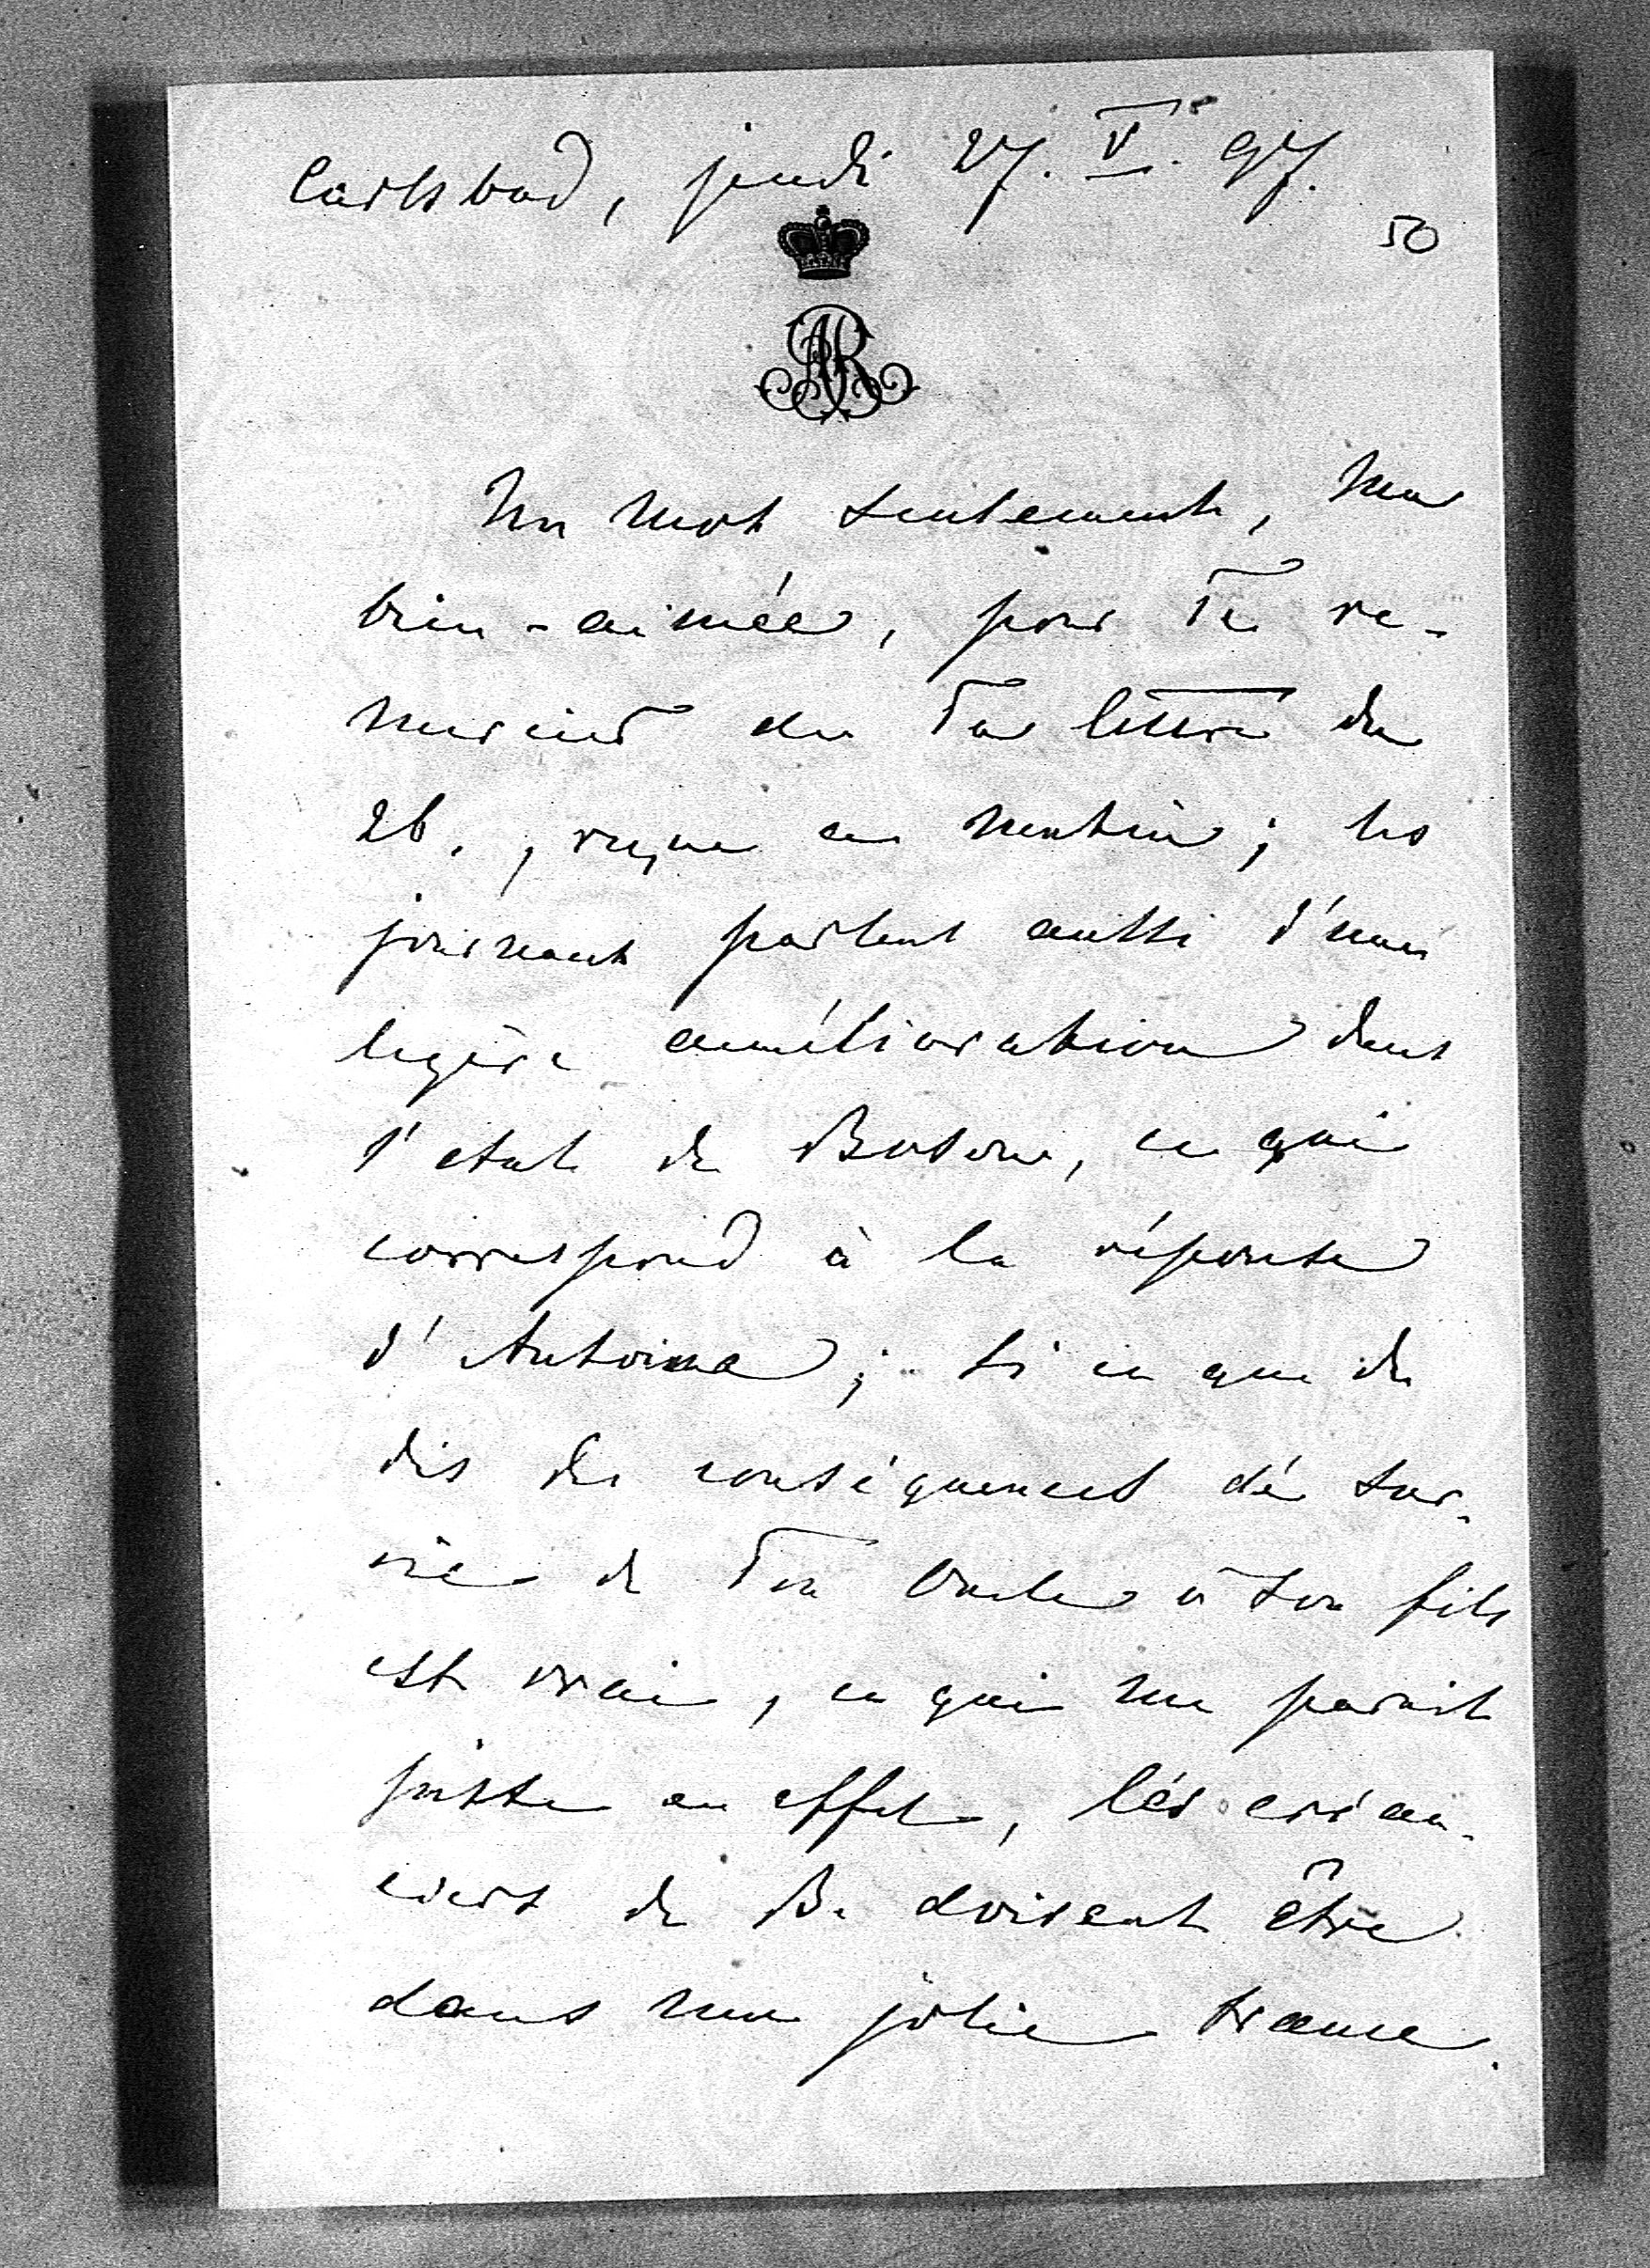 Carlsbad, jeudi 27. V. 97.
50
AR
Un mot seulement, ma
bien-aimée, pour Te re-
mercier de Ta lettre du
26., reçue ce matin; les
journaux parlent aussi d'une
legère amélioration dans
l'etat de Boson, ce qui
correspond à la réponse
d'Antoine; si ce que
dis des conséquences de sur-
vie de Ton Oncle à son fils
est vrai, ce qui me parait
juste en effet, les créan-
ciers de B. doivent être
dans une jolie transe.